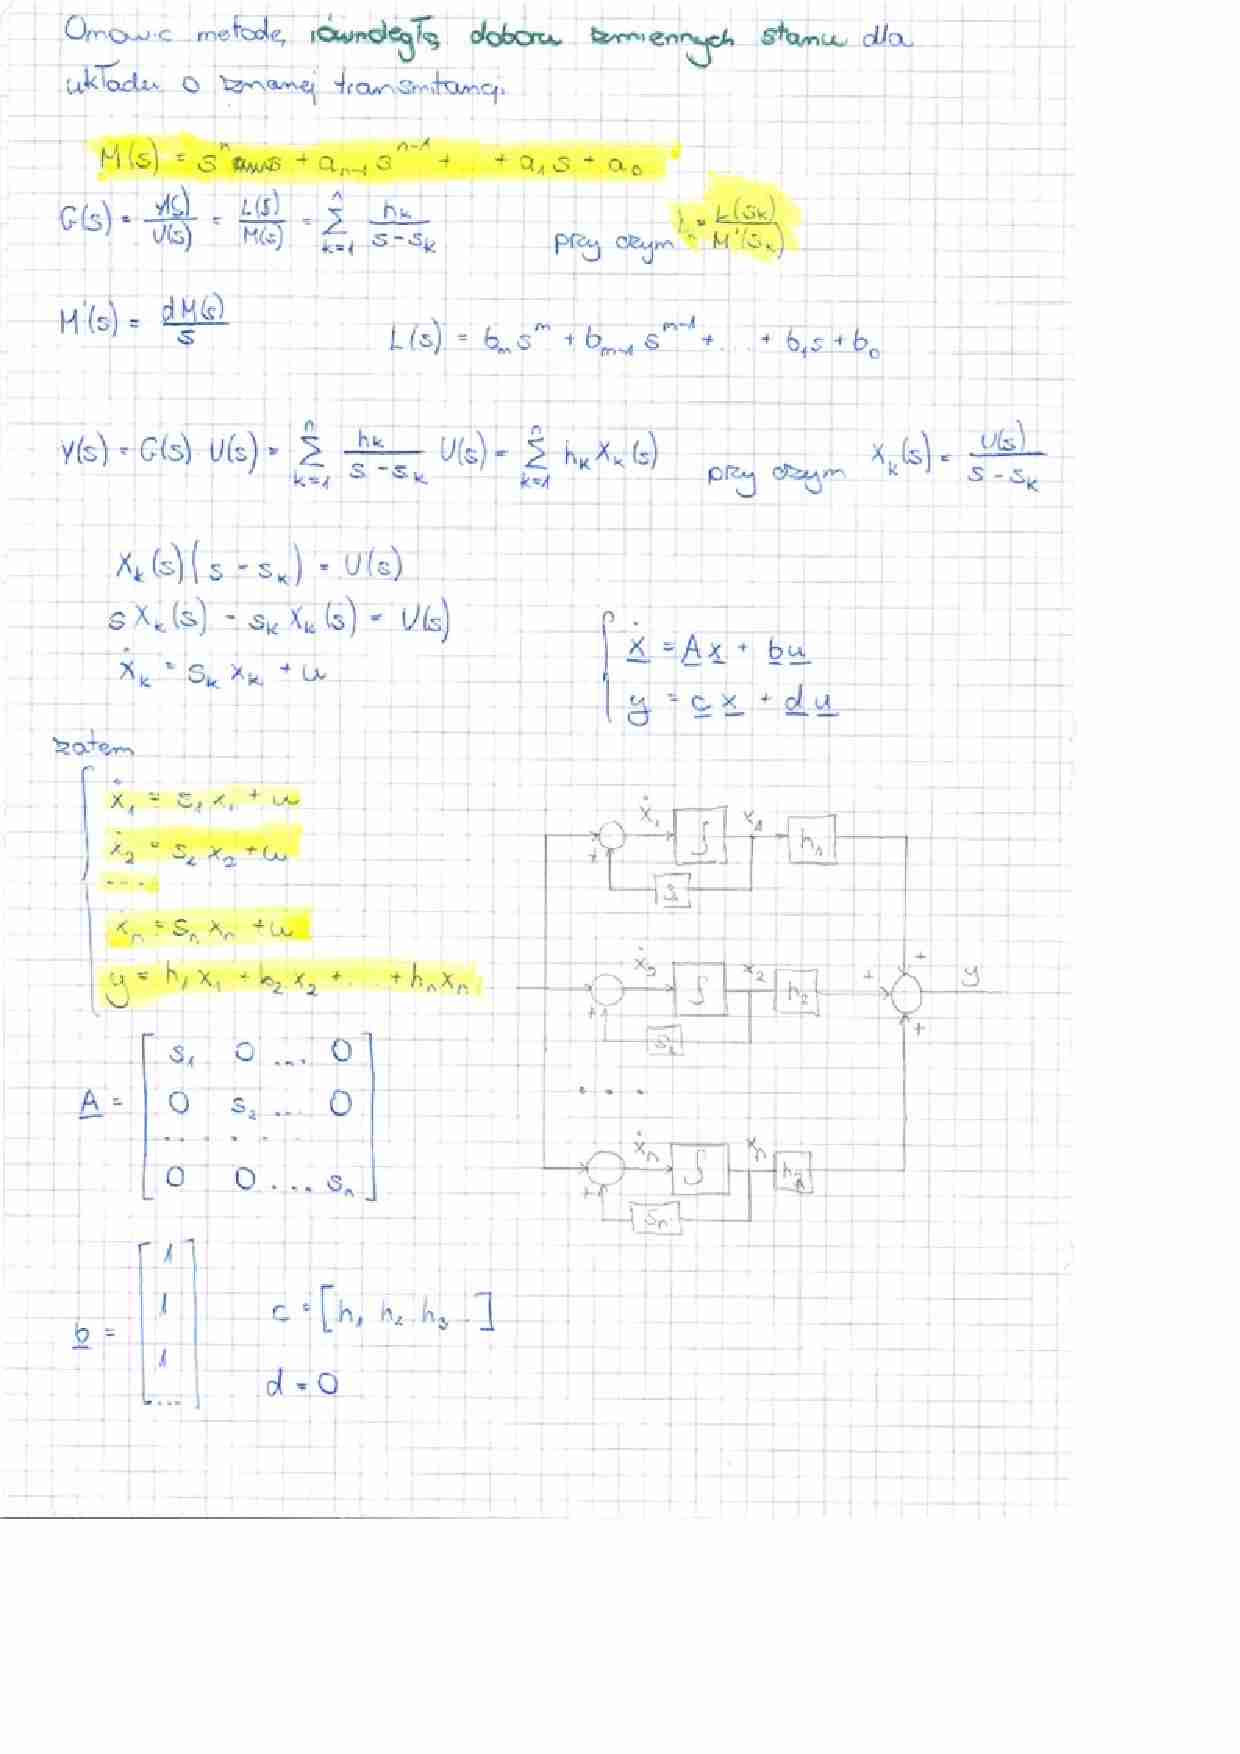 Omowic metodę równoległą doboru zmiennych stanu dla
układu o znanej transmitancji.
M(s) = s^n + a_{n-1} s^{n-1} + ... + a_1 s + a_0
G(s) = Y(s)/U(s) = L(s)/M(s) = \sum_{k=1}^{n} h_k/(s-s_k) przy czym = L(s_k)/M'(s_k)
M'(s) = dM(s)/s L(s) = b_m s^m + b_{m-1} s^{m-1} + ... + b_1 s + b_0
Y(s) = G(s) U(s) = \sum_{k=1}^{n} h_k/(s-s_k) U(s) = \sum_{k=1}^{n} h_k X_k(s) przy czym X_k(s) = U(s)/(s-s_k)
X_k(s)(s - s_k) = U(s)
s X_k(s) - s_k X_k(s) = U(s)
ẋ_k = s_k x_k + u
ẋ = A x + b u
y = c x + d u
zatem
ẋ_1 = s_1 x_1 + u
ẋ_2 = s_2 x_2 + u
...
ẋ_n = s_n x_n + u
y = h_1 x_1 + h_2 x_2 + ... + h_n x_n
ẋ_1 ∫ x_1 h_1
+ s
ẋ_2 ∫ x_2 h_2 + + y
+ s_2 +
. . .
ẋ_n ∫ x_n h_n
+ s_n
A = [ s_1 0 ... 0
0 s_2 ... 0
. . . . .
0 0 ... s_n ]
b = [ 1
1
1
... ]
c = [h_1 h_2 h_3 ..]
d = 0